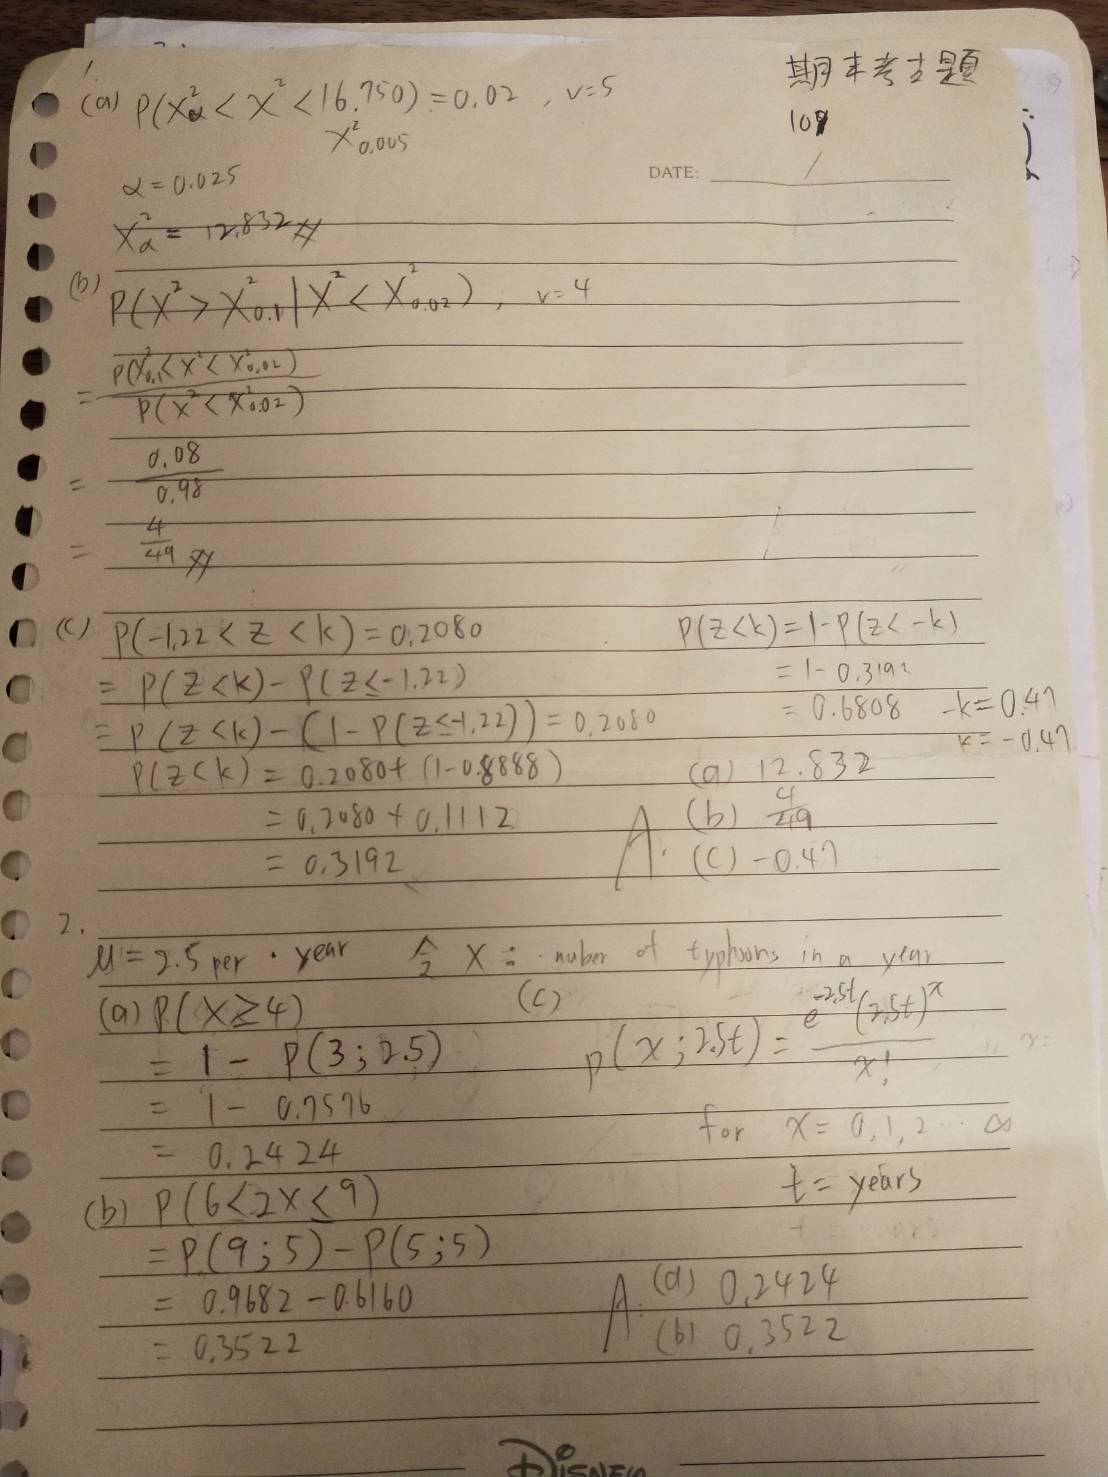 期末考古題
109
DATE: /
1.
(a) P(X²α < X² < 16.750) = 0.02 , v=5
X²0.005
α = 0.025
X²α = 12.832
(b) P(X² > X²0.1 | X² < X²0.02) , v=4
= P(X²0.1 < X² < X²0.02) / P(X² < X²0.02)
= 0.08 / 0.98
= 4/49
(c) P(-1.22 < Z < k) = 0.2080
= P(Z<k) - P(Z≤-1.22)
= P(Z<k) - (1 - P(Z≤1.22)) = 0.2080
P(Z<k) = 0.2080 + (1-0.8888)
= 0.2080 + 0.1112
= 0.3192
P(Z<k) = 1 - P(Z<-k)
= 1 - 0.3192
= 0.6808 -k = 0.47
k = -0.47
A: (a) 12.832
(b) 4/49
(c) -0.47
2.
μ = 2.5 per · year 令 X = nuber of typhoons in a year
(a) P(X≥4)
= 1 - P(3;2.5)
= 1 - 0.7576
= 0.2424
(b) P(6<2X≤9)
= P(9;5) - P(5;5)
= 0.9682 - 0.6160
= 0.3522
(c)
p(x;2.5t) = e^-2.5t (2.5t)^x / x!
for x = 0,1,2 … ∞
t = years
A: (a) 0.2424
(b) 0.3522
DISNEY